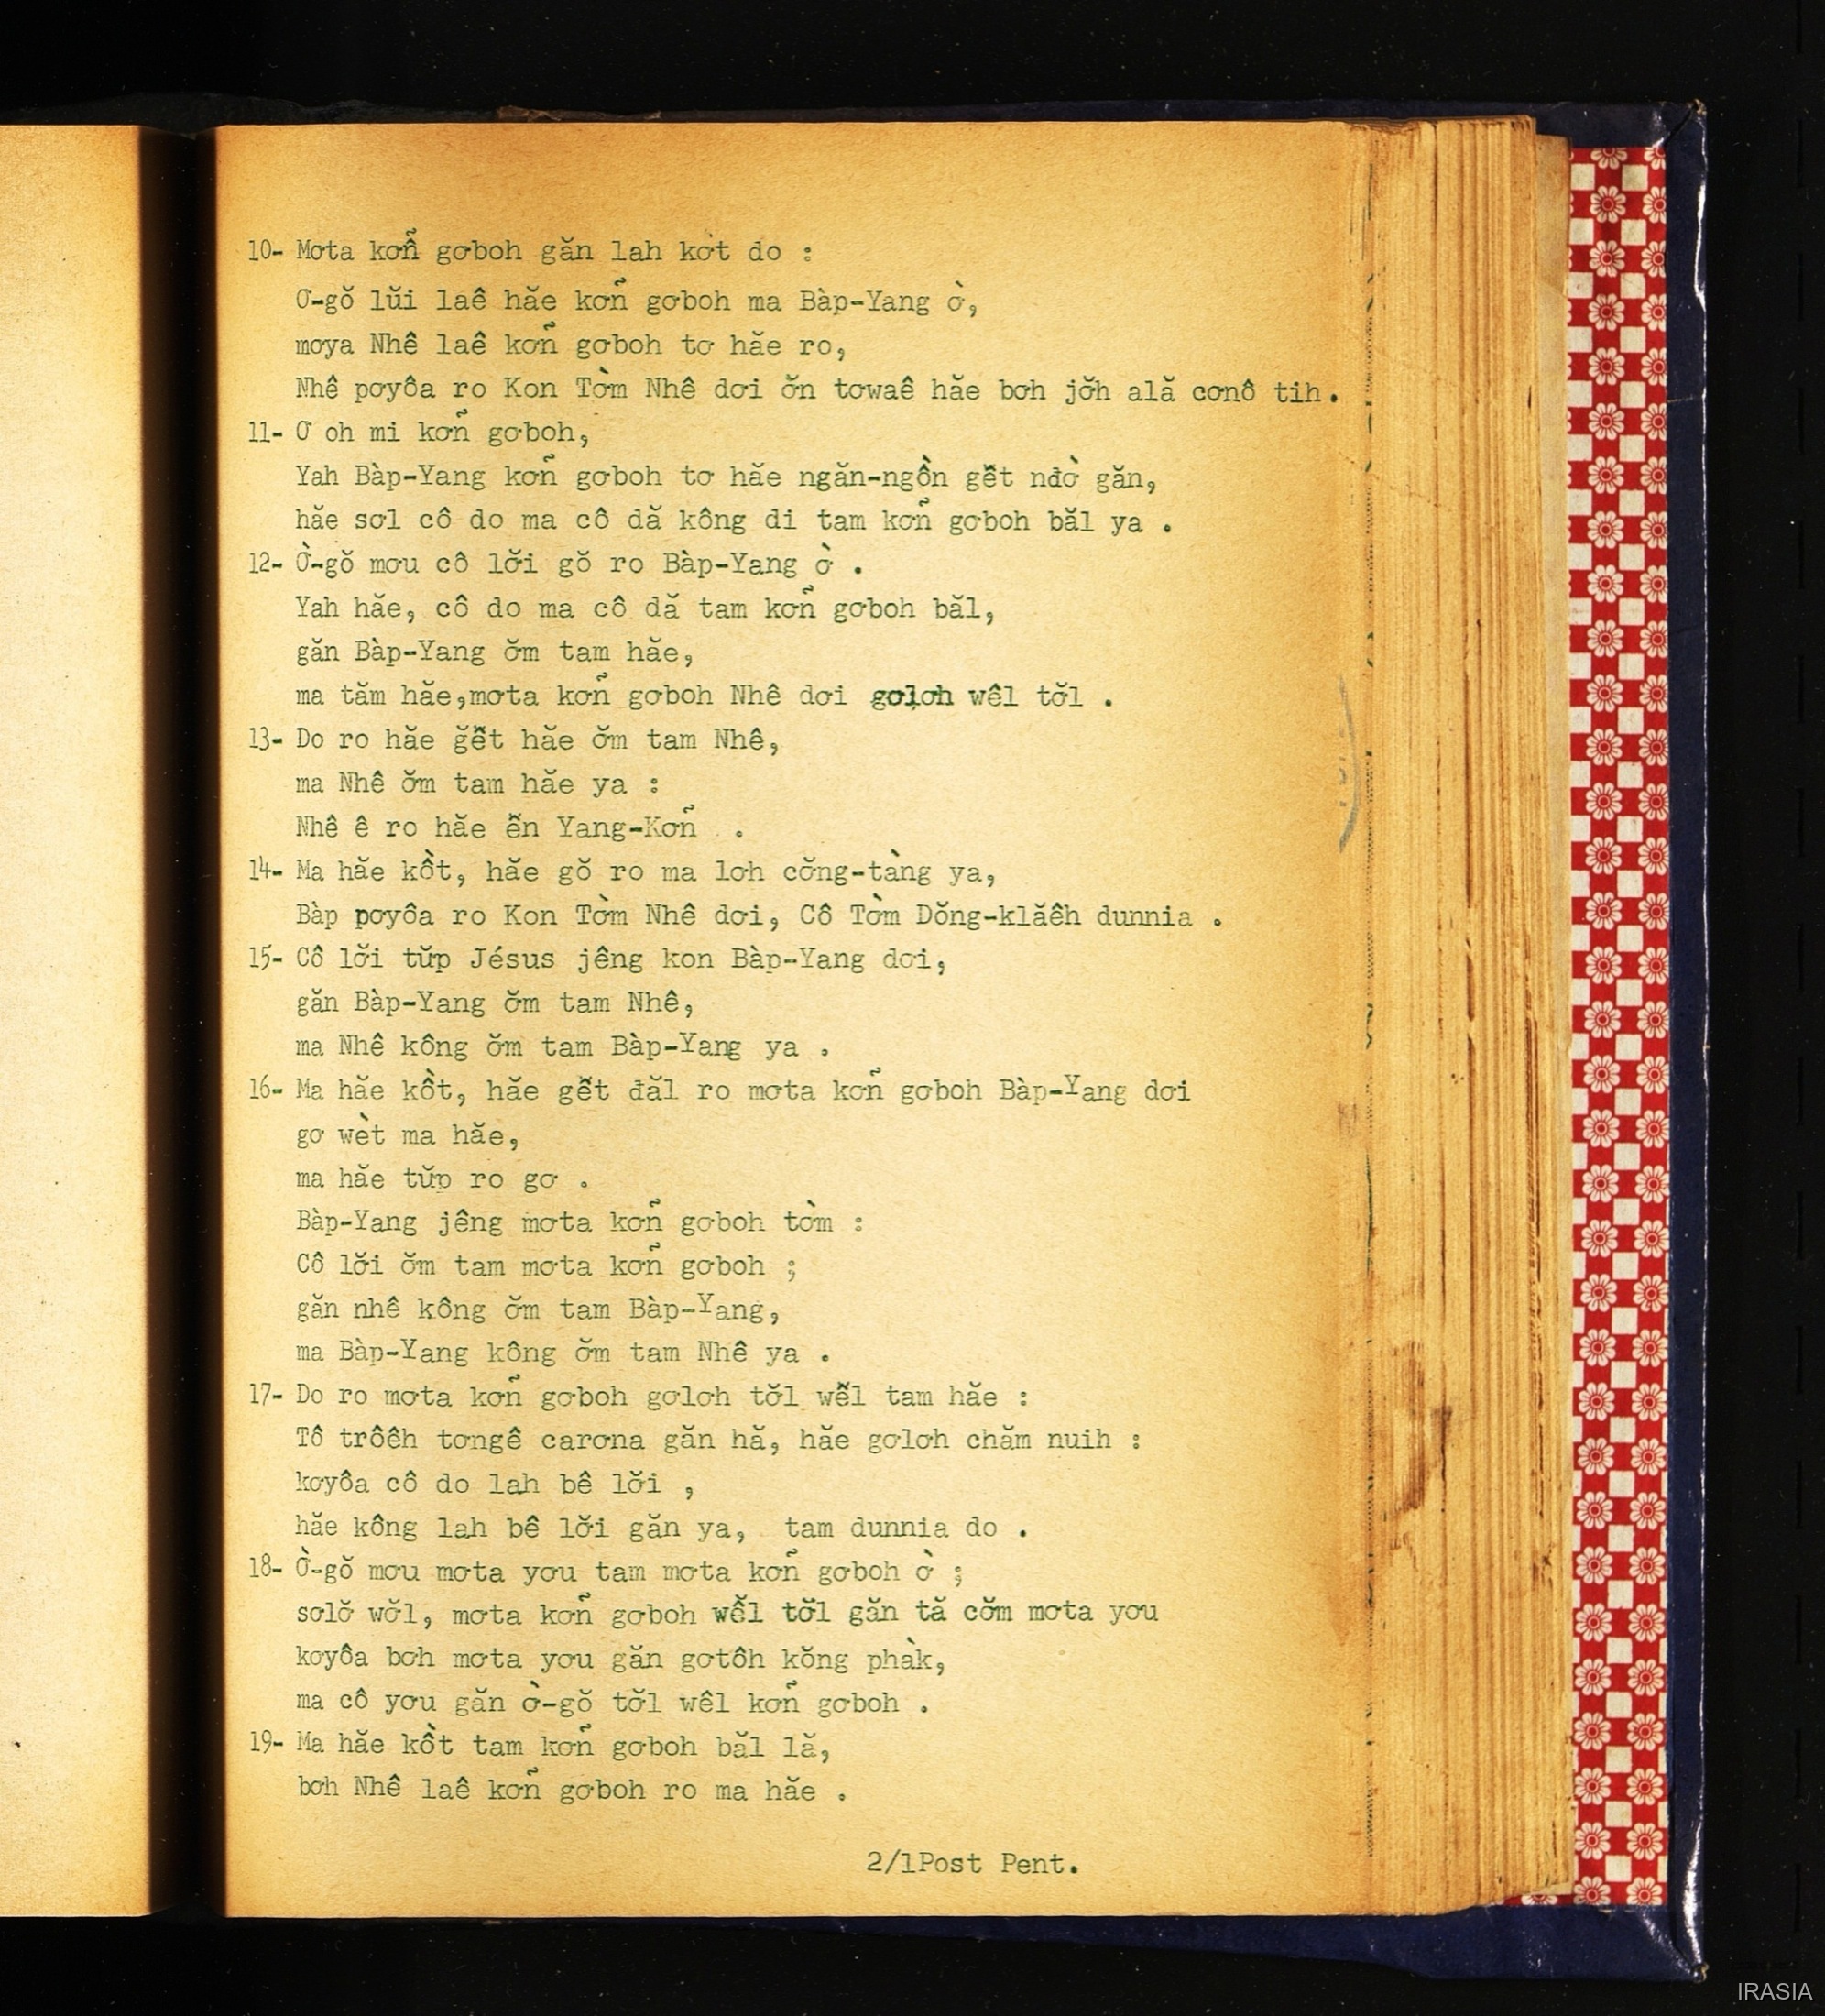 10- Mơta kơñ̂ gơboh găn lah kơt do :
Ơ-gŏ lŭi laê hăe kơñ gơboh ma Bàp-Yang ờ,
mơya Nhê laê kơñ gơboh tơ hăe ro,
Nhê pơyôa ro Kon Tờm Nhê dơi ơ̆n tơwaê hăe bơh jơ̆h ală cơnô tih.
11- Ơ oh mi kơñ gơboh,
Yah Bàp-Yang kơñ gơboh tơ hăe ngăn-ngồn gê̆t nđờ găn,
hăe sơl cô do ma cô dă kông di tam kơñ gơboh băl ya .
12- Ờ-gŏ mơu cô lơ̆i gŏ ro Bàp-Yang ờ .
Yah hăe, cô do ma cô dă tam kơñ gơboh băl,
găn Bàp-Yang ơ̆m tam hăe,
ma tăm hăe,mơta kơñ gơboh Nhê dơi gơlơh wêl tơ̆l .
13- Do ro hăe ğê̆t hăe ơ̆m tam Nhê,
ma Nhê ơ̆m tam hăe ya :
Nhê ê ro hăe ê̆n Yang-Kơñ .
14- Ma hăe kồt, hăe gŏ ro ma lơh cơ̆ng-tàng ya,
Bàp pơyôa ro Kon Tờm Nhê dơi, Cô Tờm Dŏng-klăêh dunnia .
15- Cô lơ̆i tư̆p Jésus jêng kon Bàp-Yang dơi,
găn Bàp-Yang ơ̆m tam Nhê,
ma Nhê kông ơ̆m tam Bàp-Yang ya .
16- Ma hăe kồt, hăe gê̆t đăl ro mơta kơñ gơboh Bàp-Yang dơi
gơ wèt ma hăe,
ma hăe tư̆p ro gơ .
Bàp-Yang jêng mơta kơñ gơboh tờm :
Cô lơ̆i ơ̆m tam mơta kơñ gơboh ;
găn nhê kông ơ̆m tam Bàp-Yang,
ma Bàp-Yang kông ơ̆m tam Nhê ya .
17- Do ro mơta kơñ gơboh gơlơh tơ̆l wê̆l tam hăe :
Tô trôêh tơngê carơna găn hă, hăe gơlơh chăm nuih :
kơyôa cô do lah bê lơ̆i ,
hăe kông lah bê lơ̆i găn ya, tam dunnia do .
18- Ờ-gŏ mơu mơta yơu tam mơta kơñ gơboh ờ ;
sơlơ̆ wơ̆l, mơta kơñ gơboh wê̆l tơ̆l găn tă cơ̆m mơta yơu
kơyôa bơh mơta yơu găn gơtôh kŏng phàk,
ma cô yơu găn ờ-gŏ tơ̆l wêl kơñ gơboh .
19- Ma hăe kồt tam kơñ gơboh băl lă,
bơh Nhê laê kơñ gơboh ro ma hăe .
2/1Post Pent.
IRASIA